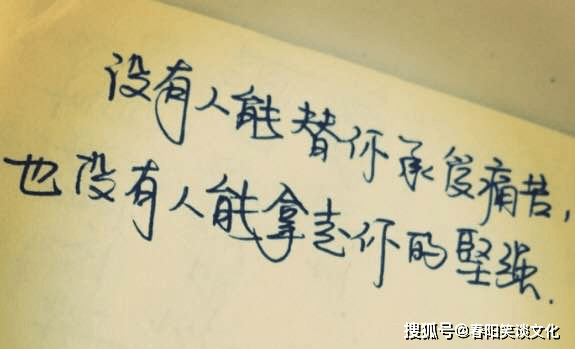 没有人能替你承受痛苦,
也没有人能拿走你的堅强.
搜狐号@春阳笑谈文化